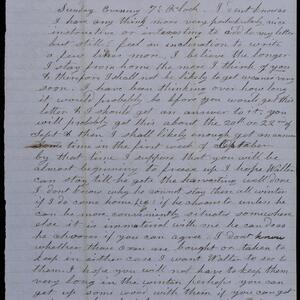 Sunday Evening 7½ O'clock. I dont know as
I have any thing more very particularly nice
instructive or interesting to add to my letter
but still I feel an inclination to write
a few lines more. I believe the longer
I stay from home the more I think of you
& therefore I shall not be likely to get weaned very
soon. I have been thinking over how long
it would probably be before you would get this
letter & I should get an answer to it. you
will probably get this about the 20th or 22nd of
Sept & then I shall likely enough get an answer
some time in the first week of
by that time I suppose that you will be
almost beginning to freeze up I hope Walter
can stay till he gets the harvesting well done
I dont know why he cannot stay there all winter
if I do come home yes if he chooses to unless he
can be more conveniently situate somewhere
else it is immaterial with me he can do as
he chooses if you can agree. I dont know
whether them oxen are bought or taken to
keep in either case I want Walter to see to
them. I hope you will not have to keep them
very long in the winter perhaps you can
get up some with them if you can get